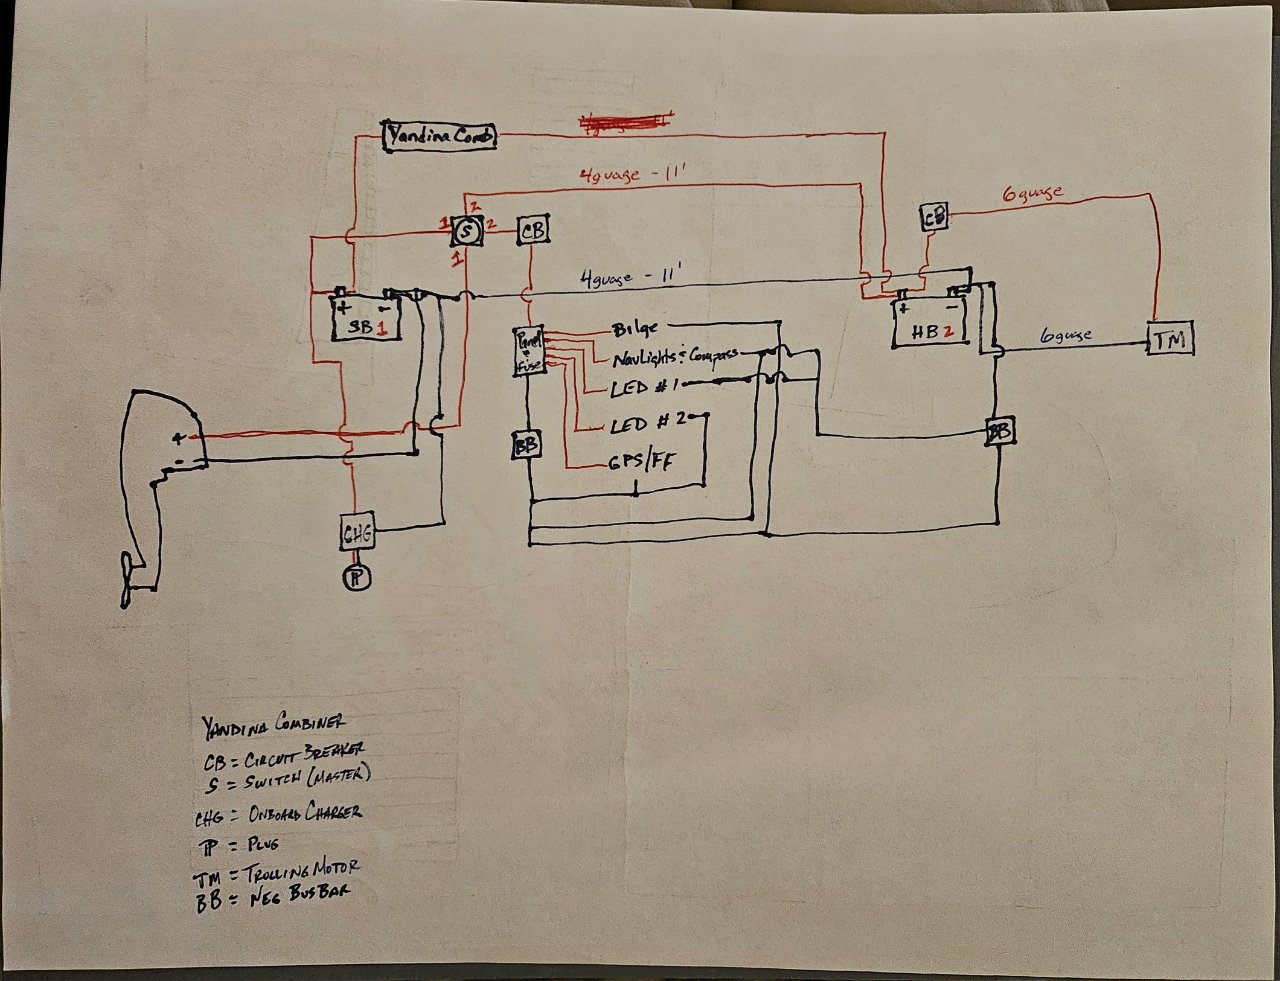 Yandina Comb
4guage - 11'
6guage
2
1
S
2
CB
CB
1
4guage - 11'
+
-
SB1
+
-
HB2
6guage
TM
Panel
&
fuse
Bilge
NavLights & Compass
LED #1
LED #2
GPS/FF
+
-
BB
BB
CHG
P
YANDINA COMBINER
CB = CIRCUIT BREAKER
S = SWITCH (MASTER)
CHG = ONBOARD CHARGER
P = PLUG
TM = TROLLING MOTOR
BB = NEG BUS BAR